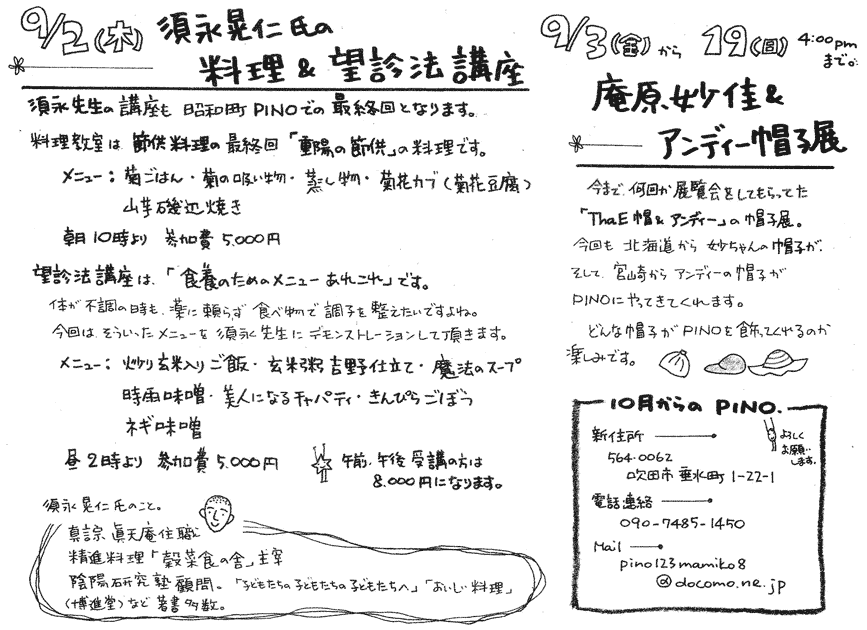 9/2(木) 須永晃仁氏の
料理&望診法講座
須永先生の講座も 昭和町PINOでの最終回となります。
料理教室は 節供料理の最終回「重陽の節供」の料理です。
メニュー：菊ごはん・菊の吸い物・蒸し物・菊花カブ(菊花豆腐)
山芋磯辺焼き
朝10時より 参加費 5.000円
望診法講座は、「食養のためのメニューあれこれ」です。
体が不調の時も、薬に頼らず 食べ物で調子を整えたいですよね。
今回は、そういったメニューを須永先生にデモンストレーションして頂きます。
メニュー：炒り玄米入りご飯・玄米粥 吉野仕立て・魔法のスープ
時雨味噌・美人になるチャパティ・きんぴらごぼう
ネギ味噌
昼2時より 参加費 5.000円
午前、午後 受講の方は
8.000円になります。
須永晃仁氏のこと。
真言宗 眞天庵住職
精進料理「穀菜食の舎」主宰
陰陽研究塾顧問。「子どもたちの子どもたちの子どもたちへ」「おいしい料理」
(博進堂)など著書多数。
9/3(金)から 19(日) 4:00pmまで。
庵原.妙佳&
アンディー帽子展
今まで、何回か展覧会をしてもらってた
「ThaE帽&アンディー」の帽子展。
今回も 北海道から 妙ちゃんの帽子が、
そして、宮崎から アンディーの帽子が
PINOにやってきてくれます。
どんな帽子がPINOを飾ってくれるのか
楽しみです。
10月からの PINO.
新住所
564-0062
吹田市 垂水町 1-22-1
よろしく
お願い
します。
電話連絡
090-7485-1450
Mail
pino123mamiko8
@docomo.ne.jp